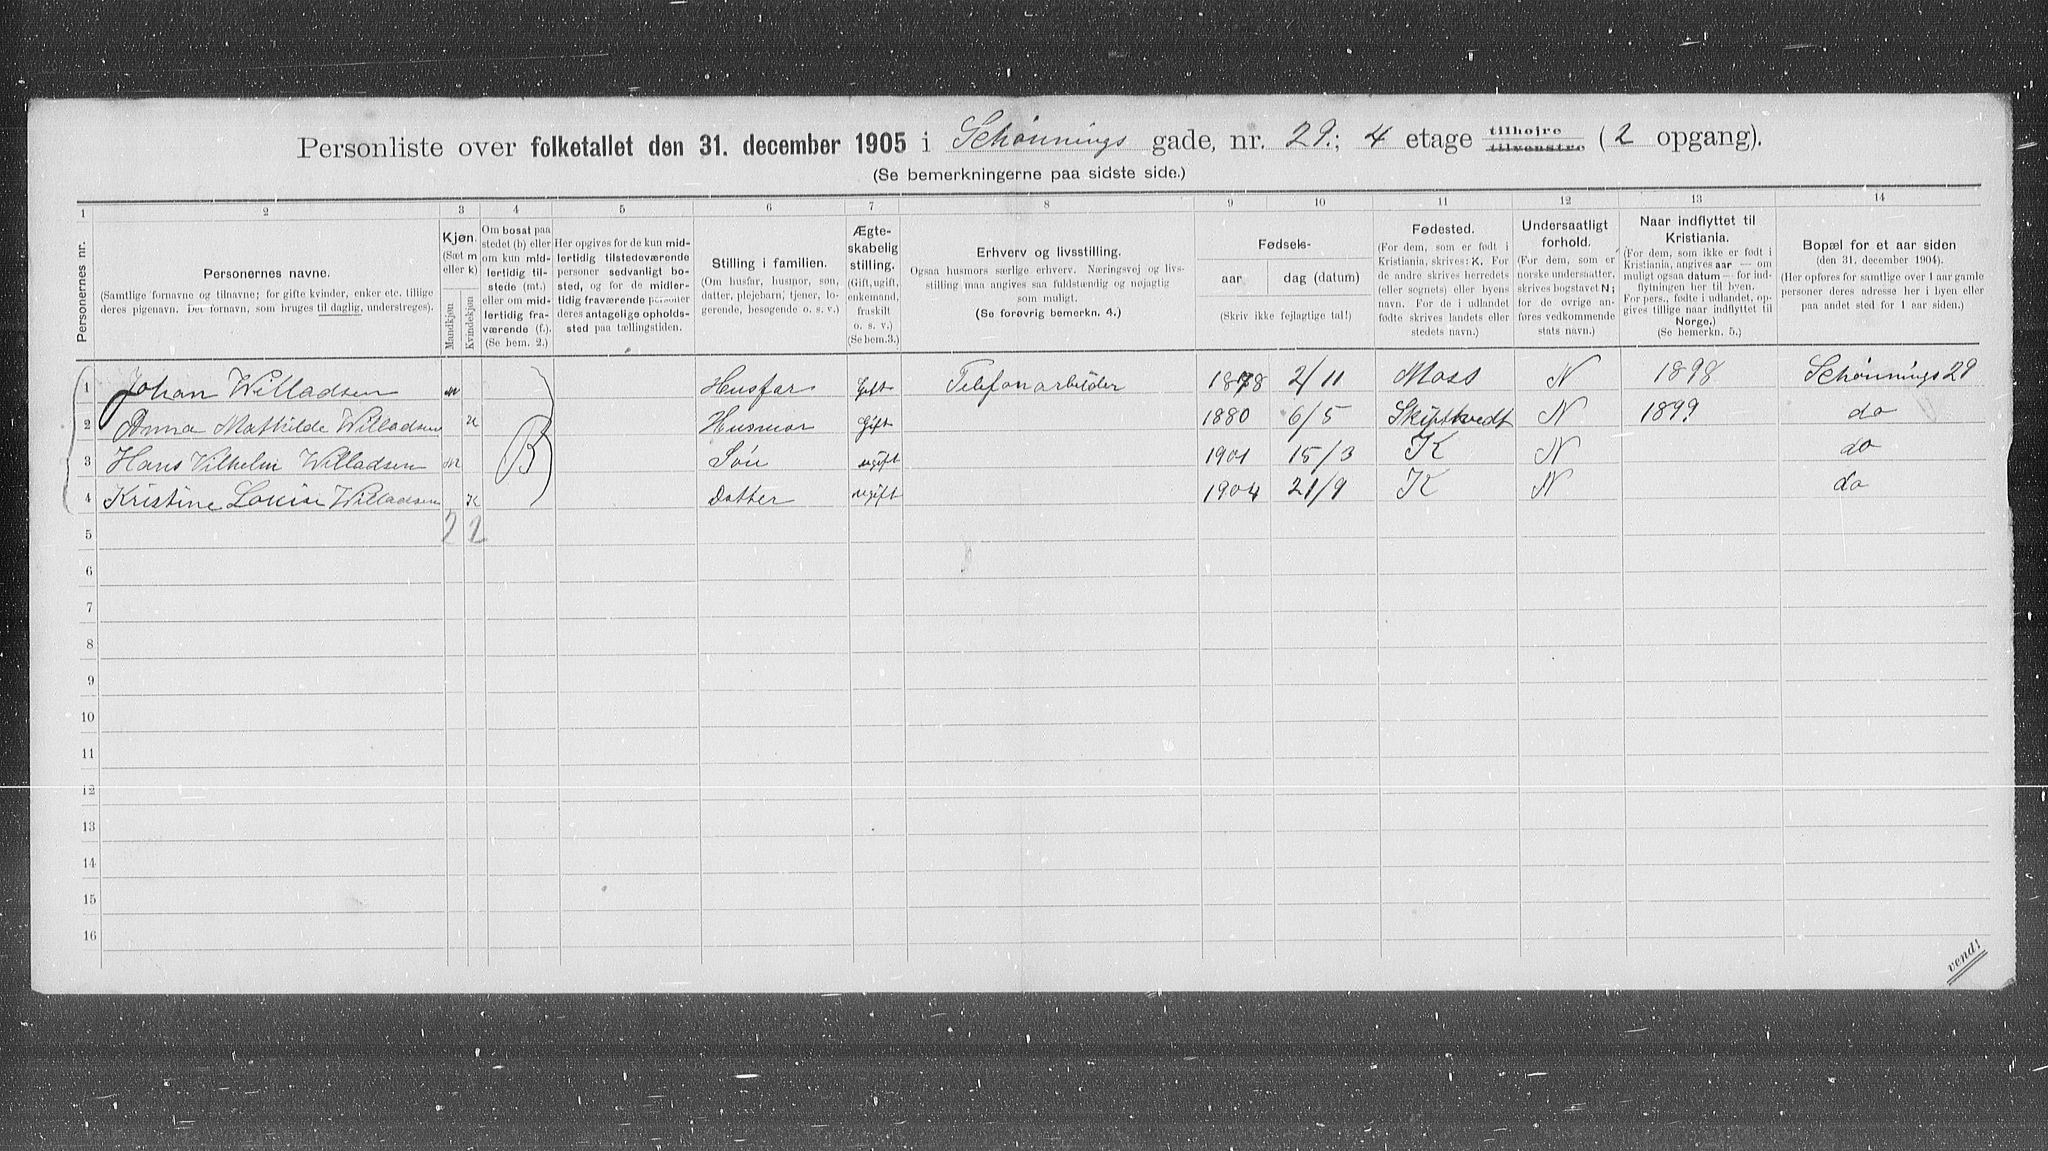 Personliste over folketallet den 31. december 1905 i Schønnings gade, nr. 29.; 4 etage tilhøjre tilvenstre (2 opgang).
(Se bemerkningerne paa sidste side.)
1 2 3 4 5 6 7 8 9 10 11 12 13 14
Personernes nr.
Personernes navne.
(Samtlige fornavne og tilnavne; for gifte kvinder, enker etc. tillige deres pigenavn. Det fornavn, som bruges til daglig, understreges).
Kjøn.
(Sæt m eller k)
Mandkjøn
Kvindekjøn
Om bosat paa stedet (b) eller om kun midlertidig tilstede (mt.) eller om midlertidig fraværende (f.).
(Se bem. 2.)
Her opgives for de kun midlertidig tilstedeværende personer sedvanligt bosted, og for de midlertidig fraværende personer deres antagelige opholdssted paa tællingstiden.
Stilling i familien.
(Om husfar, husmor, son, datter, plejebarn, tjener, logerende, besøgende o. s. v.)
Ægteskabelig stilling.
(Gift, ugift, enkemand, fraskilt o. s. v.)
(Se bem.3.)
Erhverv og livsstilling.
Ogsaa husmors særlige erhverv. Næringsvej og livsstilling maa angives saa fuldstændig og nøjagtig som muligt.
(Se forøvrig bemerkn. 4.)
Fødsels-
aar
dag (datum)
(Skriv ikke fejlagtige tal!)
Fødested.
(For dem, som er født i Kristiania, skrives: K. For de andre skrives herredets (eller sognets) eller byens navn. For de i udlandet fødte skrives landets eller stedets navn.)
Undersaatligt forhold.
(For dem, som er norske undersaatter, skrives bogstavet N; for de øvrige anføres vedkommende stats navn.)
Naar indflyttet til Kristiania.
(For dem, som ikke er født i Kristiania, angives aar — om muligt ogsaa datum — for indflytningen her til byen. For pers., fødte i udlandet, opgives tillige naar indflyttet til Norge.)
(Se bemerkn. 5.)
Bopæl for et aar siden
(den 31. december 1904).
(Her opføres for samtlige over 1 aar gamle personer deres adresse her i byen eller paa andet sted for 1 aar siden.)
1 Johan Willadsen m Husfar Gift Telefonarbeider 1878 2/11 Moss N 1898 Schønnings 29
2 Anna Mathilde Willadsen K Husmor Gift 1880 6/5 Skiptvedt N 1899 do
B
3 Hans Vilhelm Willadsen M Søn ugift 1901 15/3 K N do
4 Kristine Louise Willadsen K Datter ugift 1904 21/9 K N do
5 2 2
6
7
8
9
10
11
12
13
14
15
16
vend!